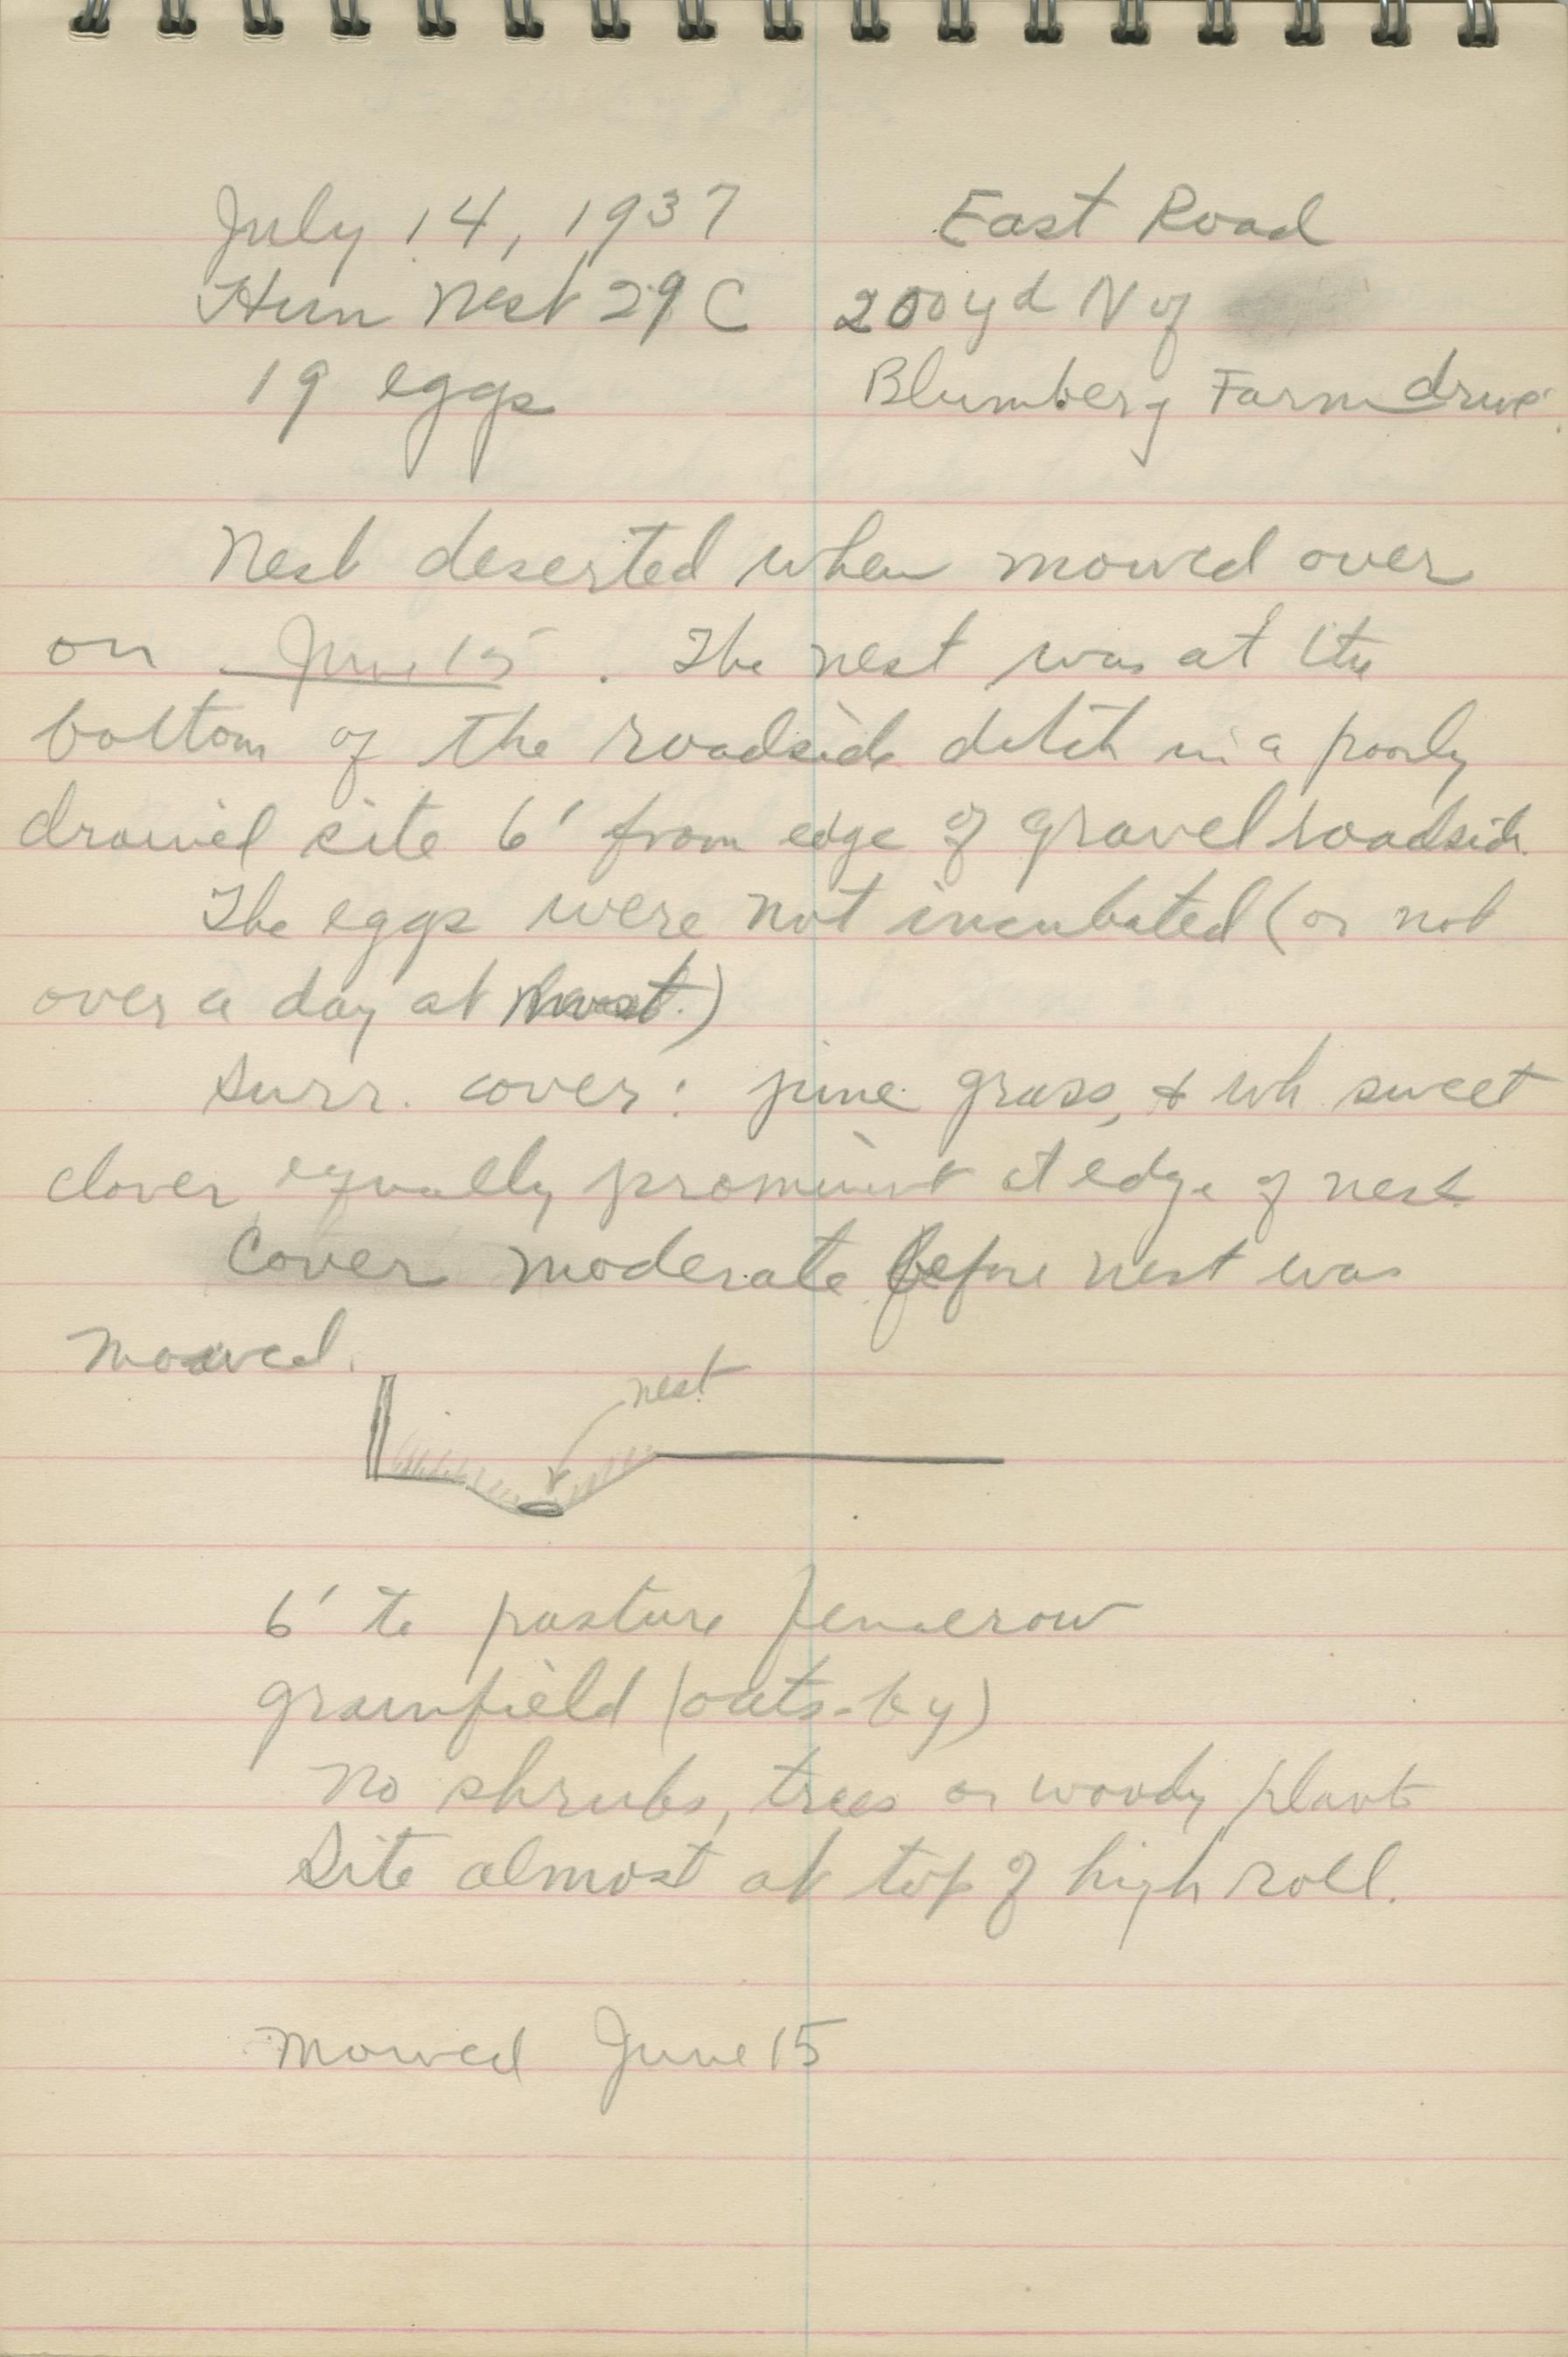 July 14, 1937
Hun Nest 29 C
19 eggs
East Road
200 yd N of
Blumberg Farm drive.
Nest deserted when mowed over
on June 15. The nest was at the
bottom of the roadside ditch in a poorly
drained site 6' from edge of gravel roadside.
The eggs were not incubated (or not
over a day at most.)
Surr. cover: june grass, & wh sweet
clover equally prominent at edge of nest.
Cover moderate before nest was
mowed.
nest
6' to pasture fencerow
grainfield (oats-by)
No shrubs, trees or woody plants
Site almost at top of high roll.
Mowed June 15